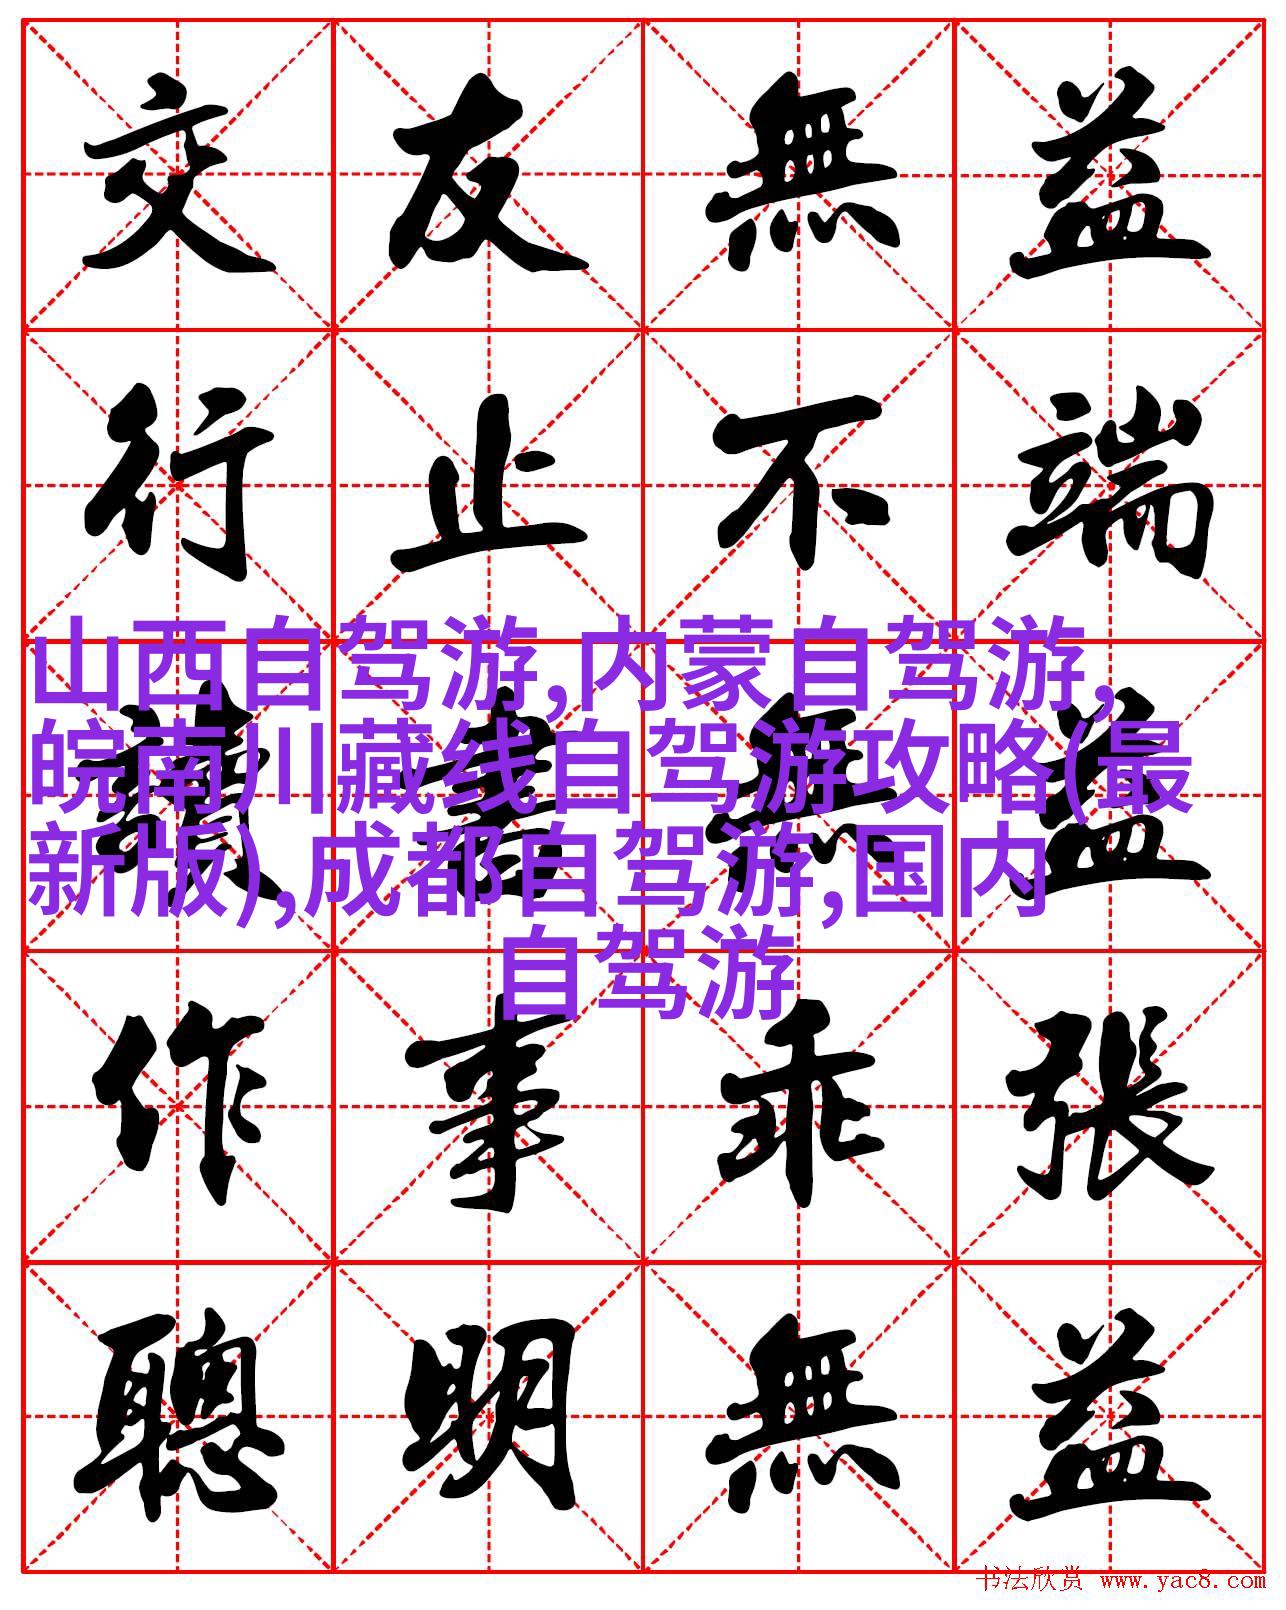 交友無益
行止不端
讀書無益
作事乖張
聰明無益
山西自驾游,内蒙自驾游,
皖南川藏线自驾游攻略(最
新版),成都自驾游,国内
自驾游
书法欣赏 www.yac8.com